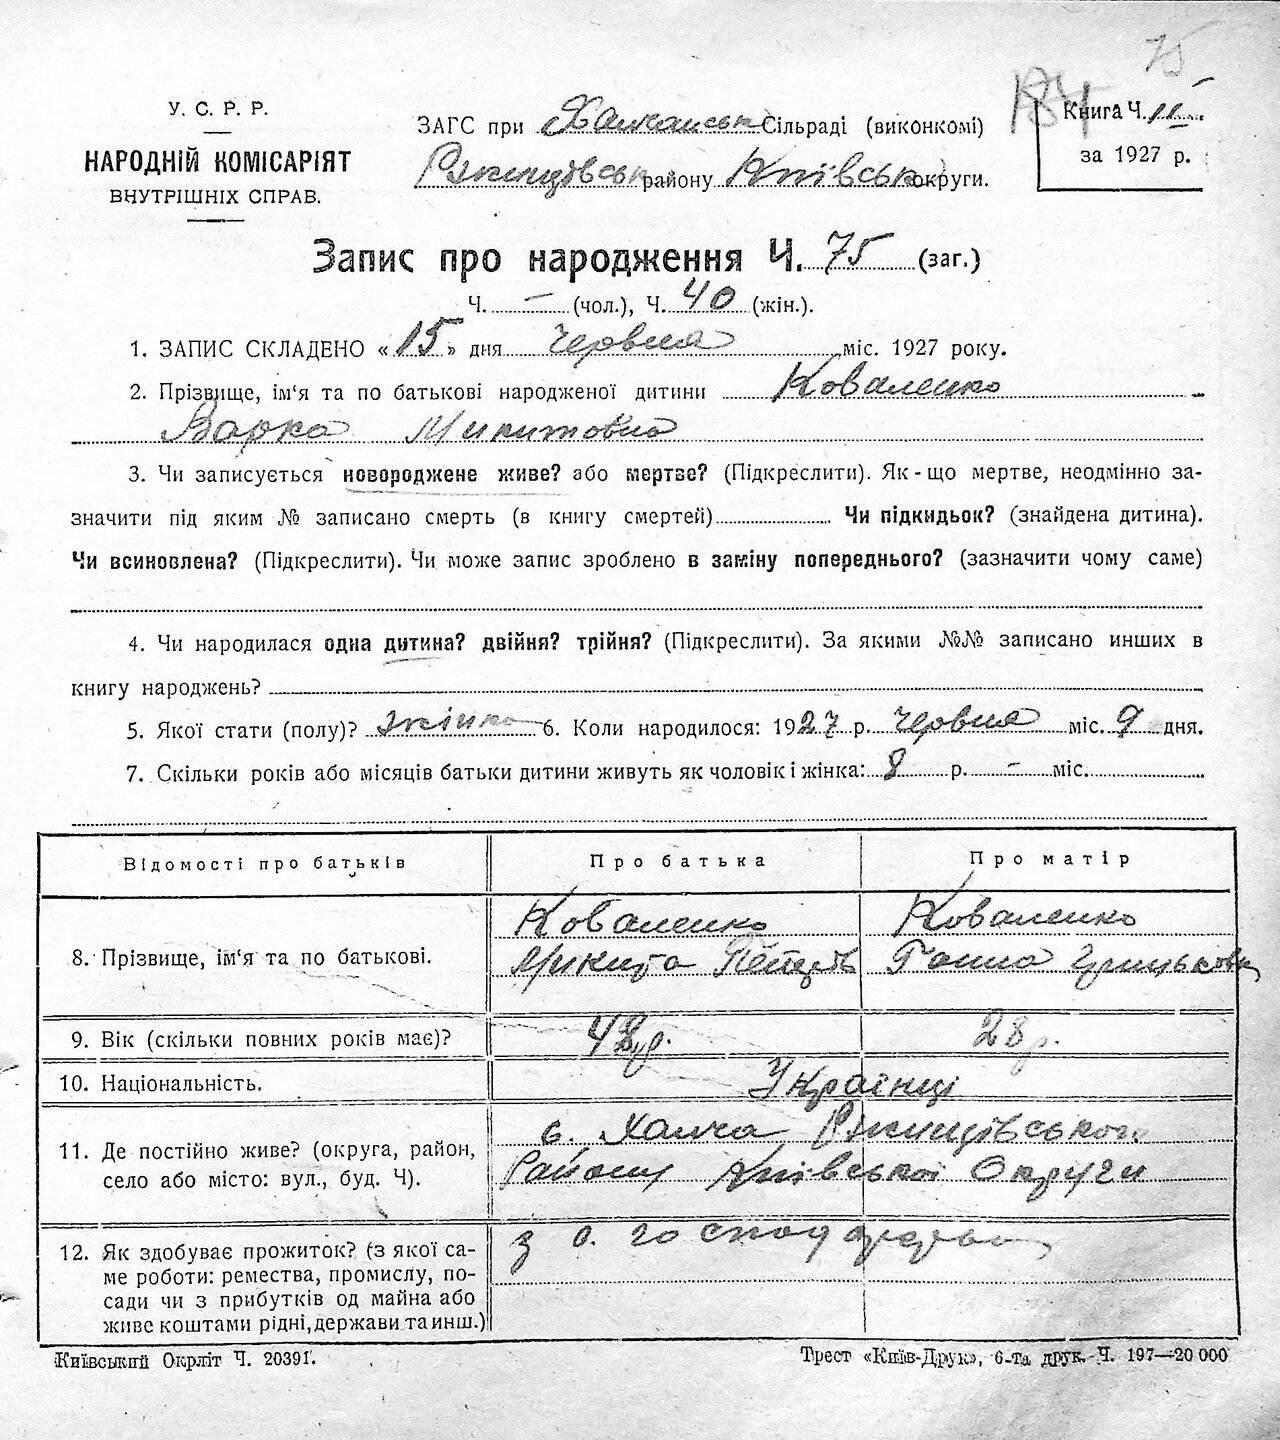 75
184
У. С. Р. Р.
НАРОДНІЙ КОМІСАРІЯТ
ВНУТРІШНІХ СПРАВ.
ЗАГС при Халчанськ Сільраді (виконкомі)
Ржищівськ району Київськ округи.
Книга Ч. II
за 1927 р.
Запис про народження Ч. 75 (заг.)
Ч. – (чол.), Ч. 40 (жін.).
1. ЗАПИС СКЛАДЕНО « 15 » дня червня міс. 1927 року.
2. Прізвище, ім‘я та по батькові народженої дитини Коваленко
Варка Микитовна
3. Чи записується новороджене живе? або мертве? (Підкреслити). Як - що мертве, неодмінно за-
значити під яким № записано смерть (в книгу смертей) Чи підкидьок? (знайдена дитина).
Чи всиновлена? (Підкреслити). Чи може запис зроблено в заміну попереднього? (зазначити чому саме)
4. Чи народилася одна дитина? двійня? трійня? (Підкреслити). За якими №№ записано инших в
книгу народжень?
5. Якої стати (полу)? жінка 6. Коли народилося: 1927 р. червня міс. 9 дня.
7. Скільки років або місяців батьки дитини живуть як чоловік і жінка: 8 р. – міс.
Відомості про батьків Про батька Про матір
8. Прізвище, ім‘я та по батькові. Коваленко Микита Петров Коваленко Ганна Грицьковна
9. Вік (скільки повних років має)? 42 р. 28 р.
10. Національність. Українці
11. Де постійно живе? (округа, район, с. Халча Ржищівського
село або місто: вул., буд. Ч). Району Київської Округи
12. Як здобуває прожиток? (з якої са- з с. господарства
ме роботи: ремества, промислу, по-
сади чи з прибутків од майна або
живе коштами рідні, держави та инш.)
Київський Окрліт Ч. 20391.
Трест «Київ-Друк», 6-та друк. Ч. 197—20 000